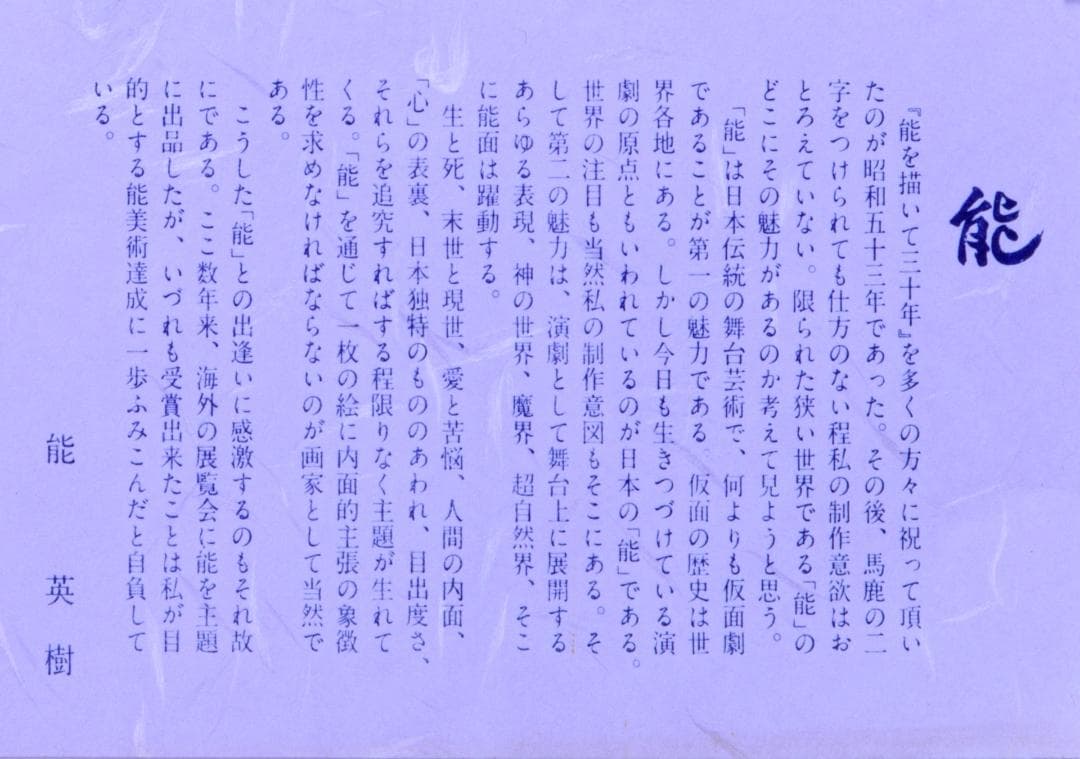 能
『能を描いて三十年』を多くの方々に祝って頂い
たのが昭和五十三年であった。その後、馬鹿の二
字をつけられても仕方のない程私の制作意欲はお
とろえていない。限られた狭い世界である「能」の
どこにその魅力があるのか考えて見ようと思う。
「能」は日本伝統の舞台芸術で、何よりも仮面劇
であることが第一の魅力である 仮面の歴史は世
界各地にある。しかし今日も生きつづけている演
劇の原点ともいわれているのが日本の「能」である。
世界の注目も当然私の制作意図もそこにある。そ
して第二の魅力は、演劇として舞台上に展開する
あらゆる表現、神の世界、魔界、超自然界、そこ
に能面は躍動する。
生と死、末世と現世、愛と苦悩、人間の内面、
「心」の表裏、日本独特のもののあわれ、目出度さ、
それらを追究すればする程限りなく主題が生れて
くる。「能」を通じて一枚の絵に内面的主張の象徴
性を求めなければならないのが画家として当然で
ある。
こうした「能」との出逢いに感激するのもそれ故
にである。ここ数年来、海外の展覧会に能を主題
に出品したが、いづれも受賞出来たことは私が目
的とする能美術達成に一歩ふみこんだと自負して
いる。
能 英 樹